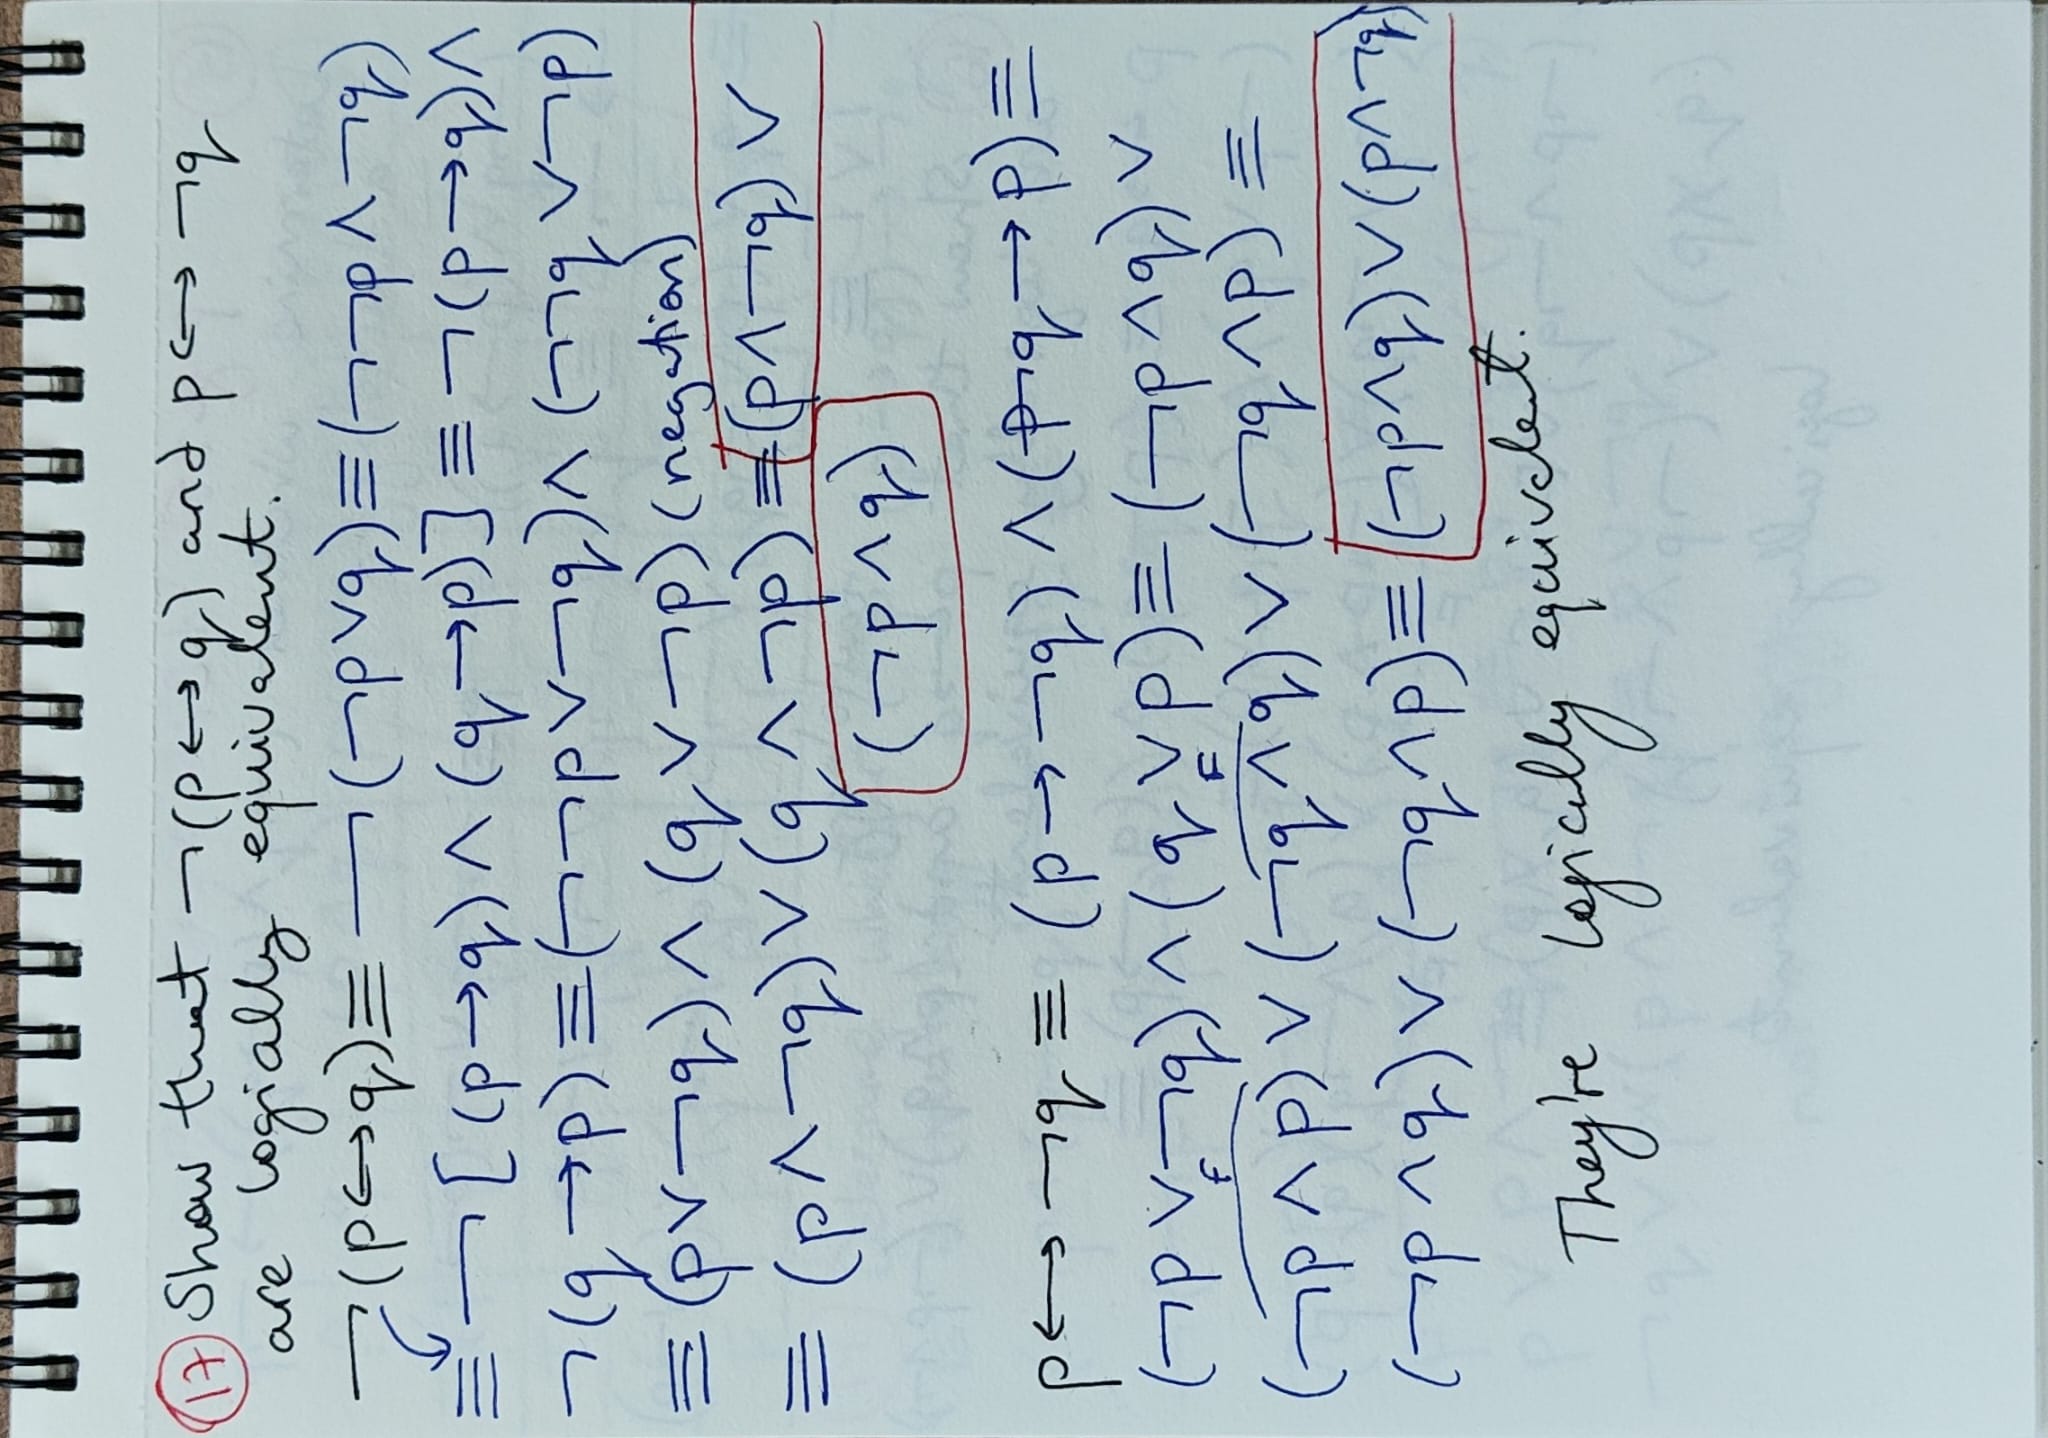 17 Show that ¬(p↔q) and p↔ ¬q
are logially equivalent.
¬(p↔q)≡ ¬(¬p∨q)≡(¬¬p∧¬q)
≡ ¬[(p→q) ∧ (q→p)] ≡ ¬(p→q) ∨
¬(q→p) ≡ (¬¬p∧¬q) ∨ (¬¬q ∧ ¬p)
≡ (p∧¬q) ∨ (q ∧ ¬p) (negation)
≡ (p∧¬q) ∨ (q ∧ ¬p) ≡ (p∧¬q) ∨
(¬p∧q)
p↔ ¬q ≡ (p→¬q) ∧ (¬q→p) ≡
(¬p∨¬q) ∧ (q∨p) ≡ (¬p∧q) ∨
F F
(¬p∧p) ∨ (¬q∧q) ∨ (¬q∧p) ≡
(¬p∧q) ∨ (¬q∧p) ≡ (¬p∧q) ∨ (p∧¬q)
They're logically equivalent.